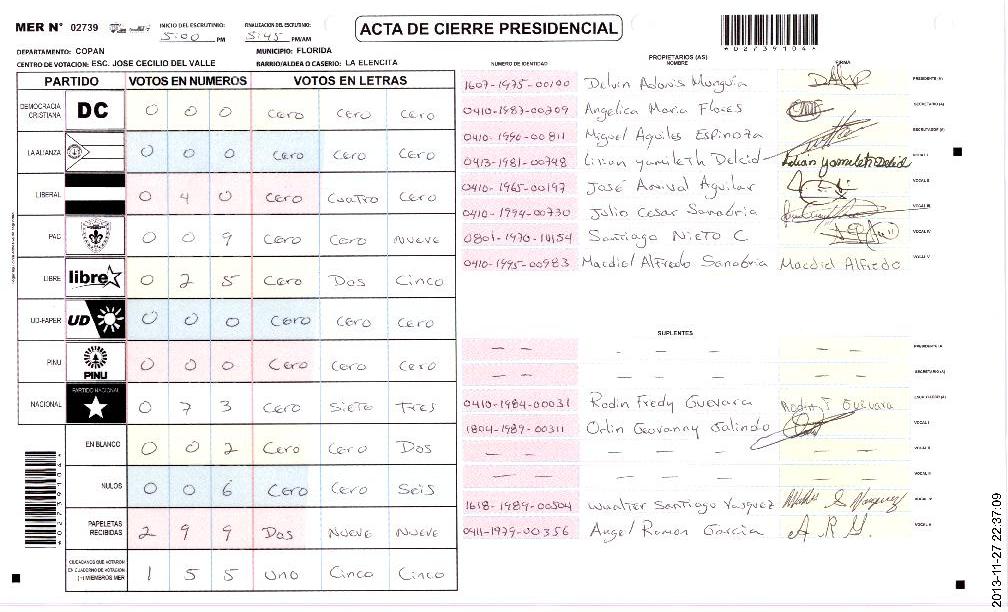 MER N° 02739
INICIO DEL ESCRUTINIO: 5:00 PM
FINALIZACION DEL ESCRUTINIO: 5:45 PM/AM
ACTA DE CIERRE PRESIDENCIAL
*02739104*
DEPARTAMENTO: COPAN
MUNICIPIO: FLORIDA
CENTRO DE VOTACION: ESC. JOSE CECILIO DEL VALLE
BARRIO/ALDEA O CASERIO: LA ELENCITA
PARTIDO VOTOS EN NUMEROS VOTOS EN LETRAS
DEMOCRACIA CRISTIANA DC 0 0 0 Cero Cero Cero
LA ALIANZA 0 0 0 Cero Cero Cero
LIBERAL 0 4 0 Cero Cuatro Cero
PAC 0 0 9 Cero Cero Nueve
LIBRE libre 0 2 5 Cero Dos Cinco
UD-FAPER UD 0 0 0 Cero Cero Cero
PINU PINU 0 0 0 Cero Cero Cero
NACIONAL PARTIDO NACIONAL 0 7 3 Cero Siete Tres
EN BLANCO 0 0 2 Cero Cero Dos
NULOS 0 0 6 Cero Cero Seis
PAPELETAS RECIBIDAS 2 9 9 Dos Nueve Nueve
CIUDADANOS QUE VOTARON EN CUADERNO DE VOTACION (+) MIEMBROS MER 1 5 5 Uno Cinco Cinco
*02739104*
PROPIETARIOS (AS)
NUMERO DE IDENTIDAD NOMBRE FIRMA
1607-1975-00190 Delvin Adonis Munguia PRESIDENTE (A)
0410-1987-00709 Angelica Maria Flores SECRETARIO (A)
0410-1990-00811 Miguel Aquiles Espinoza ESCRUTADOR (A)
0413-1981-00748 Lilian yamileth Delcid Lilian Yamileth Delcid VOCAL I
0410-1965-00197 José Anival Aguilar VOCAL II
0410-1994-00730 Julio Cesar Sanabria VOCAL III
0801-1970-10154 Santiago Nieto C. VOCAL IV
0410-1995-00983 Macdiel Alfredo Sanabria Macdiel Alfredo VOCAL V
SUPLENTES
— — - — — — — PRESIDENTE (A)
— — — — — — — SECRETARIO (A)
0410-1984-00031 Rodin Fredy Guevara Rodin F Guevara ESCRUTADOR (A)
1804-1989-00311 Orlin Geovanny Galindo VOCAL I
— — - — — — — VOCAL II
— — — — — — — VOCAL III
1618-1989-00504 Wualter Santiago Vasquez VOCAL IV
0411-1979-00356 Angel Ramon Garcia A.R.G. VOCAL V
2013-11-27 22:37:09